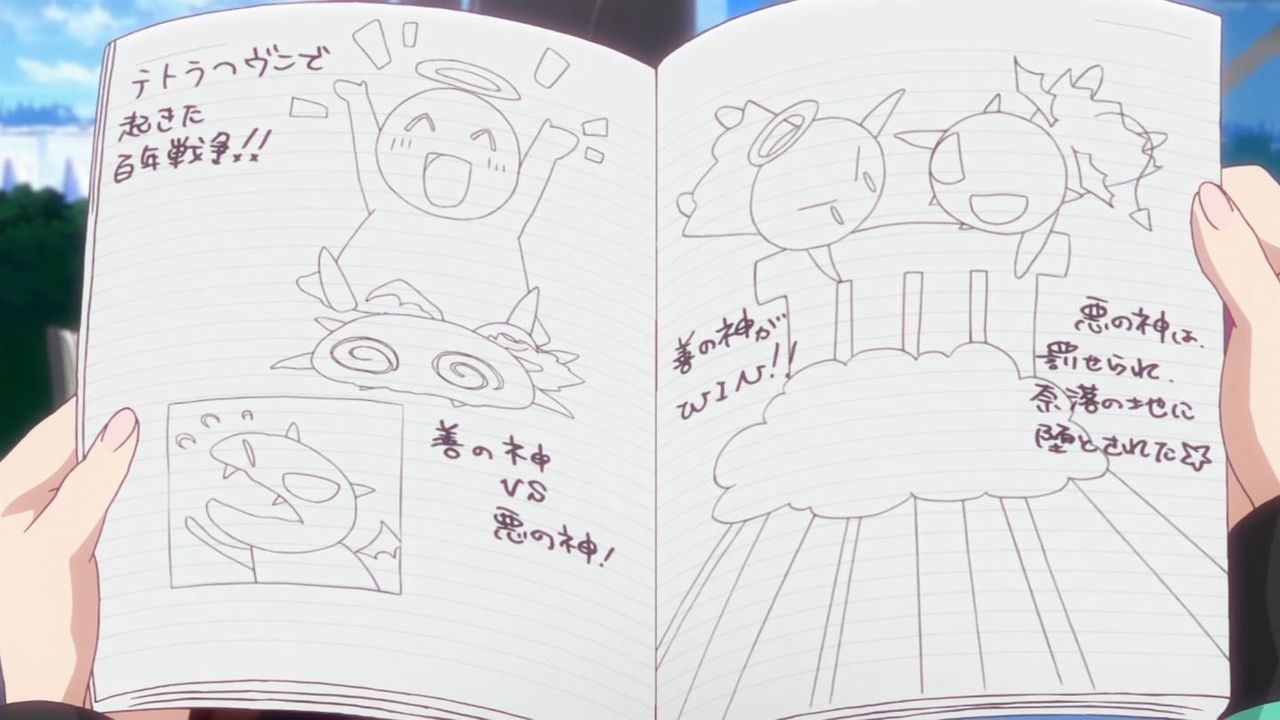 テトラヘヴンで
起きた
百年戦争!!
善の神
VS
悪の神!
善の神が
WIN!!
悪の神は、
罰せられて、
奈落の地に
堕とされた☆